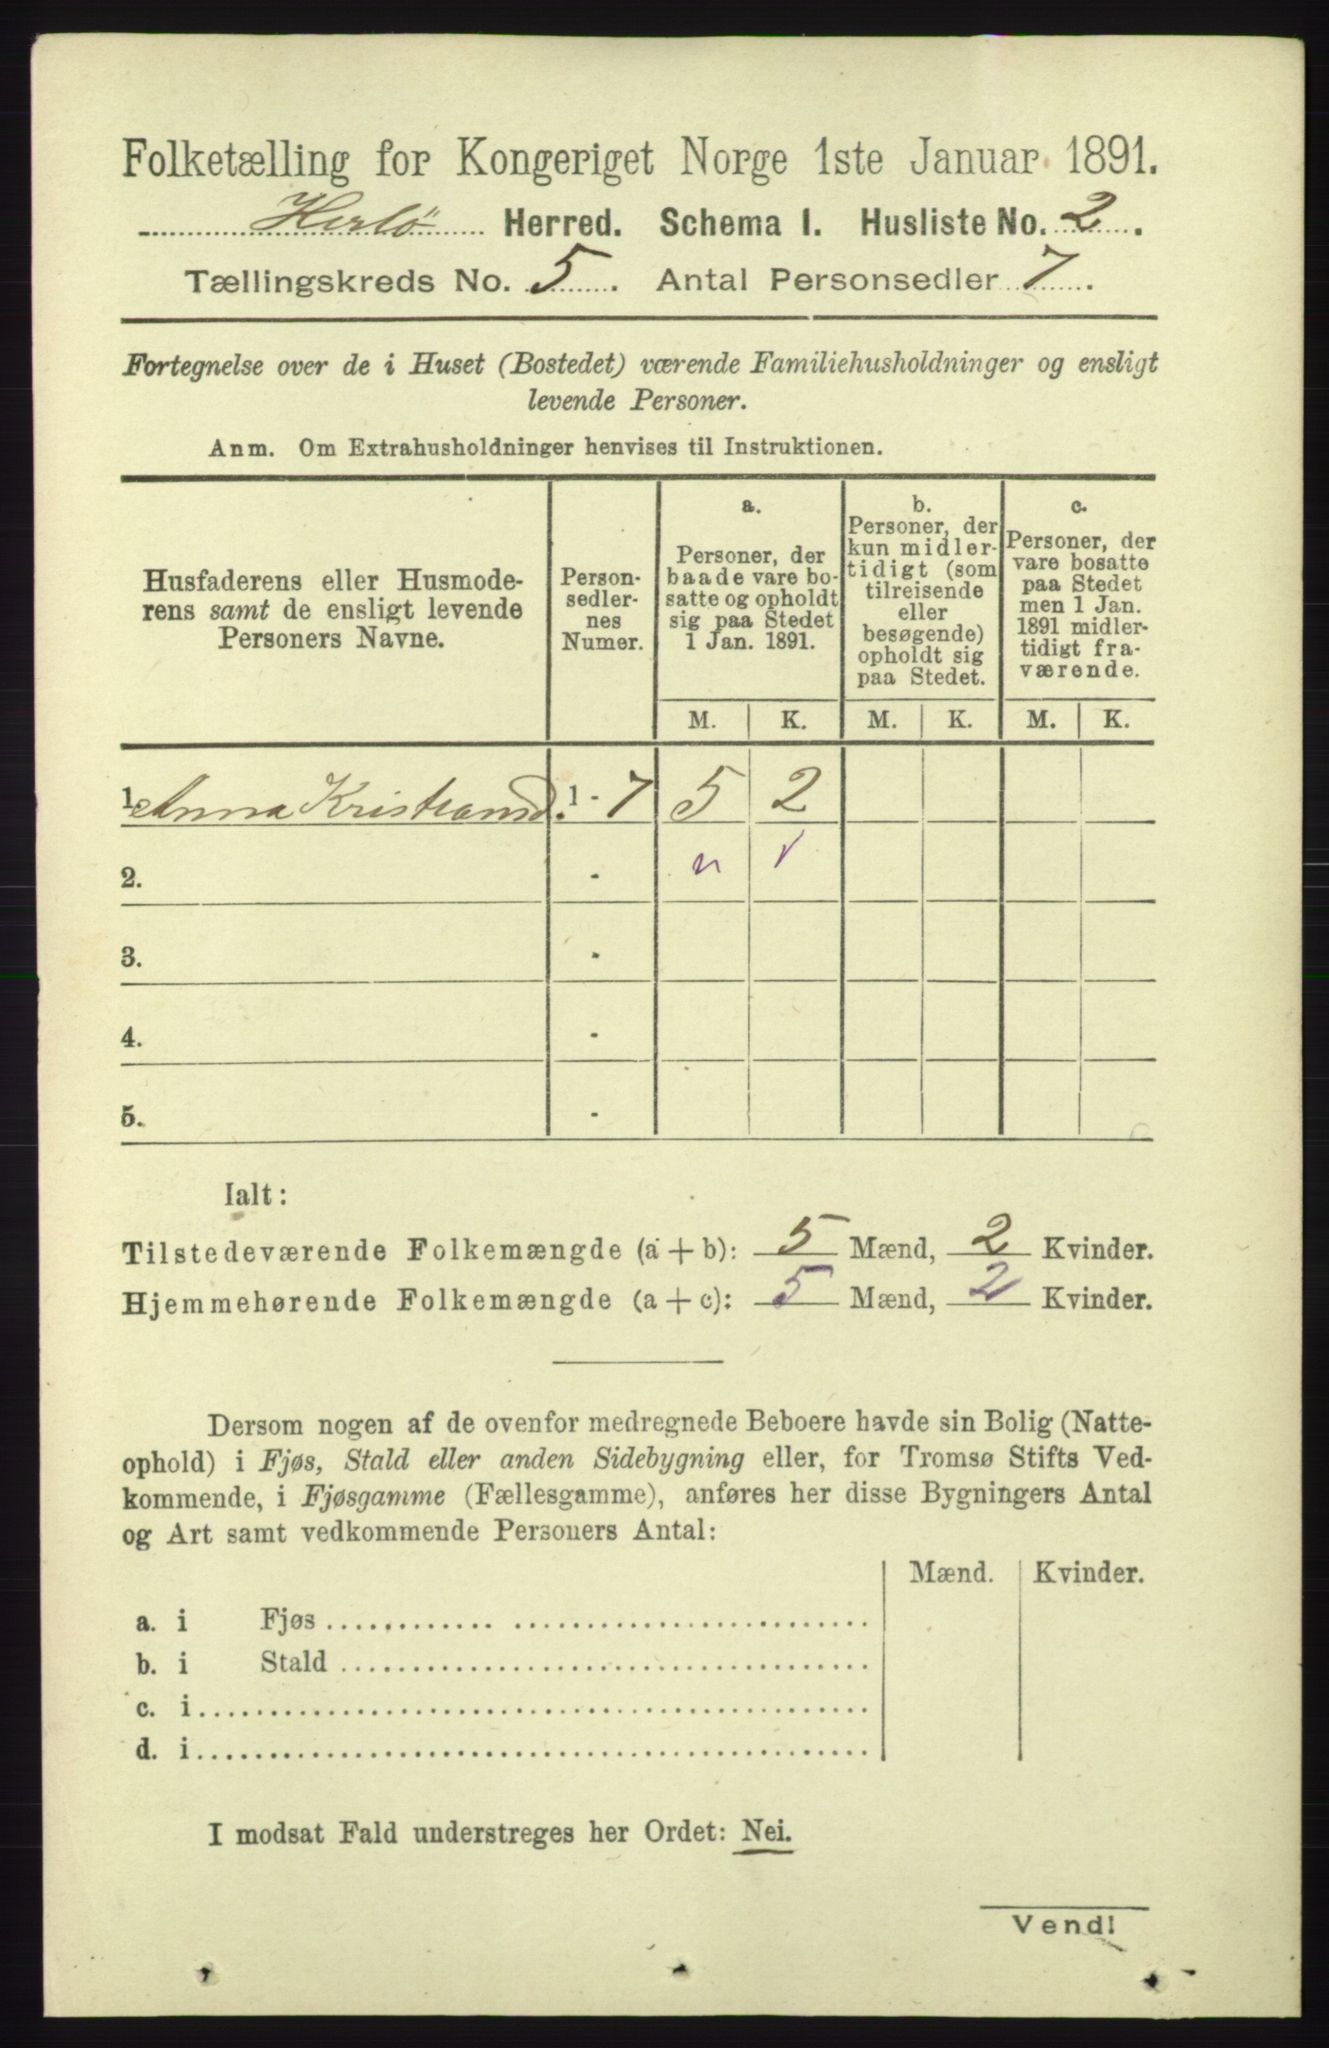 Folketælling for Kongeriget Norge 1ste Januar 1891.
Herlö Herred. Schema I. Husliste No. 2.
Tællingskreds No. 5. Antal Personsedler 7.
Fortegnelse over de i Huset (Bostedet) værende Familiehusholdninger og ensligt
levende Personer.
Anm. Om Extrahusholdninger henvises til Instruktionen.
Husfaderens eller Husmode-
rens samt de ensligt levende
Personers Navne.
Person-
sedler-
nes
Numer.
a.
Personer, der
baade vare bo-
satte og opholdt
sig paa Stedet
1 Jan. 1891.
b.
Personer, der
kun midler-
tidigt (som
tilreisende
eller
besøgende)
opholdt sig
paa Stedet.
c.
Personer, der
vare bosatte
paa Stedet
men 1 Jan.
1891 midler-
tidigt fra-
værende.
M. K. M. K. M. K.
1. Anna Kristiansd. 1 - 7 5 2
2. -
3. -
4. -
5. -
Ialt:
Tilstedeværende Folkemængde (a + b): 5 Mænd, 2 Kvinder.
Hjemmehørende Folkemængde (a + c): 5 Mænd, 2 Kvinder.
Dersom nogen af de ovenfor medregnede Beboere havde sin Bolig (Natte-
ophold) i Fjøs, Stald eller anden Sidebygning eller, for Tromsø Stifts Ved-
kommende, i Fjøsgamme (Fællesgamme), anføres her disse Bygningers Antal
og Art samt vedkommende Personers Antal:
Mænd. Kvinder.
a. i Fjøs
b. i Stald
c. i
d. i
I modsat Fald understreges her Ordet: Nei.
Vend!